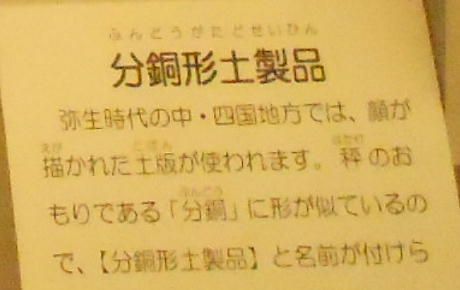 ふんどうがたどせいひん
分銅形土製品
弥生時代の中・四国地方では、顔が
えが どばん はかり
描かれた土版が使われます。秤のお
ふんどう
もりである「分銅」に形が似ているの
で、【分銅形土製品】と名前が付けら